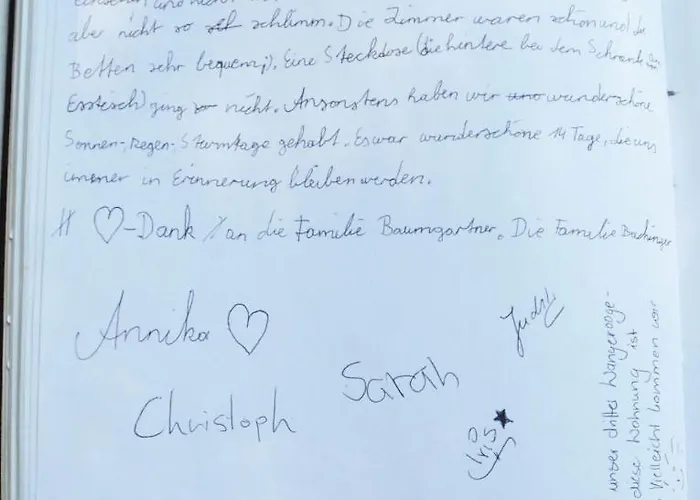 aber nicht so schlimm. Die Zimmer waren schön und die
Betten sehr bequem;). Eine Steckdose (die hintere bei dem Schrank am
Esstisch) ging nicht. Ansonsten haben wir wunderschöne
Sonnen-, Regen-, Sturmtage gehabt. Es war wunderschöne 14 Tage, die uns
immer in Erinnerung bleiben werden.
♡-Dank an die Familie Baumgartner. Die Familie
Annika ♡
Christoph
Sarah
Judith
Iris ★
unser drittes Wangerooge-
diese Wohnung ist
Vielleicht kommen wir